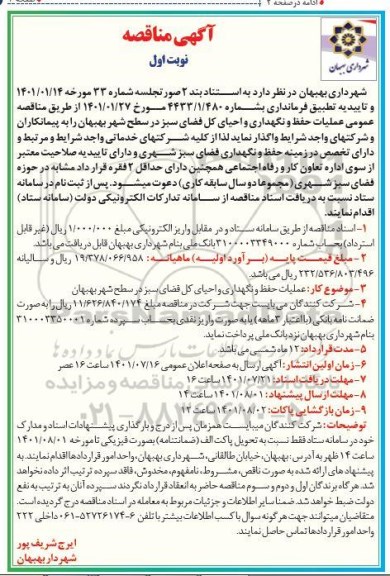 ادامه در صفحه ۲
آگهی مناقصه
نوبت اول
شهرداری بهبهان
شهرداری بهبهان در نظر دارد به استناد بند ۲ صورتجلسه شماره ۳۳ مورخه ۱۴۰۱/۰۱/۱۴
و تاییدیه تطبیق فرمانداری بشماره ۴۴۳۳/۱/۴۸۰ مورخ ۱۴۰۱/۰۱/۲۷ از طریق مناقصه
عمومی عملیات حفظ و نگهداری و احیای کل فضای سبز در سطح شهر بهبهان را به پیمانکاران
و شرکتهای واجد شرایط واگذار نماید لذا از کلیه شرکتهای خدماتی واجد شرایط و مرتبط و
دارای تخصص در زمینه حفظ و نگهداری فضای سبز شهری و دارای تاییدیه صلاحیت معتبر
از سوی اداره تعاون کار و رفاه اجتماعی همچنین دارای حداقل ۲ فقره قرارداد مشابه در حوزه
فضای سبز شهری (مجموعا دو سال سابقه کاری) دعوت میشود. پس از ثبت نام در سامانه
ستاد نسبت به دریافت اسناد مناقصه از سامانه تدارکات الکترونیکی دولت (سامانه ستاد)
اقدام نمایند.
۱-اسناد مناقصه از طریق سامانه ستاد و در مقابل واریز الکترونیکی مبلغ ۱/۰۰۰/۰۰۰ ریال (غیر قابل
استرداد) بحساب شماره ۳۱۰۰۰۰۳۳۴۹۰۰۰ بانک ملی بنام شهرداری بهبهان قابل دریافت می باشد.
۲-مبلغ قیمت پایه (برآورد اولیه) ماهیانه: ۱۹/۳۷۸/۰۶۶/۹۵۸ ریال و سالیانه
۲۳۲/۵۳۶/۸۰۳/۴۹۶ ریال می باشد.
۳-موضوع کار: عملیات حفظ و نگهداری و احیای کل فضای سبز در سطح شهر بهبهان
۴-شرکت کنندگان می بایست جهت شرکت در مناقصه مبلغ ۱۱/۶۲۶/۸۴۰/۱۷۴ ریال را به صورت
ضمانت نامه بانکی (با اعتبار ۳ماهه) یا به صورت واریز نقدی بحساب سپرده شماره ۳۱۰۰۰۰۳۳۵۰۰۰۱
بنام شهرداری بهبهان نزد بانک ملی پرداخت نماید.
۵-مدت قرارداد: ۱۲ ماه شمسی می باشد.
۶-زمان اولین انتشار: آگهی ارسال به صفحه اعلان عمومی ۱۴۰۱/۰۷/۱۶ ساعت ۱۶ عصر
۷-مهلت دریافت اسناد: ۱۴۰۱/۰۷/۲۱ ساعت ۱۶
۸-مهلت ارسال پیشنهاد: ۱۴۰۱/۰۸/۰۱ ساعت ۱۴
۹-زمان بازگشایی پاکات: ۱۴۰۱/۰۸/۰۲ ساعت ۱۲
توضیحات: شرکت کنندگان میبایست همزمان پس از درج و بارگذاری پیشنهادات اسناد و مدارک
خود در سامانه ستاد فقط نسبت به تحویل پاکت الف (ضمانتنامه) بصورت فیزیکی تا مورخه ۱۴۰۱/۰۸/۰۱
ساعت ۱۴ ظهر به آدرس: بهبهان، خیابان طالقانی، شهرداری بهبهان، واحد امور قراردادها اقدام نمایند. به
پیشنهاد های ارائه شده به صورت ناقص، مشروط، نامفهوم، مخدوش، فاقد سپرده ترتیب اثر داده نخواهد
شد. هرگاه برندگان اول و دوم و سوم مناقصه حاضر به انعقاد قرارداد نگردند سپرده آنان به ترتیب به نفع
دولت ضبط خواهد شد. ضمنا سایر اطلاعات و جزئیات مربوط به معامله در اسناد مناقصه درج گردیده است.
متقاضیان میتوانند جهت هر گونه سوال یا کسب اطلاعات بیشتر با تلفن ۶-۰۶۱۵۲۷۲۶۱۷۴ داخلی ۲۲۲
واحد امور قراردادها تماس حاصل نمایند.
ایرج شریف پور
شهردار بهبهان